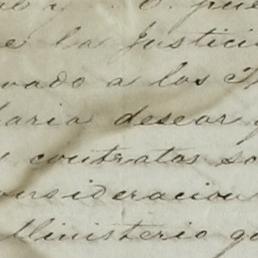 e la Justicia
vado a los
haria desear
contratos so
onsideracion
Ministerio q